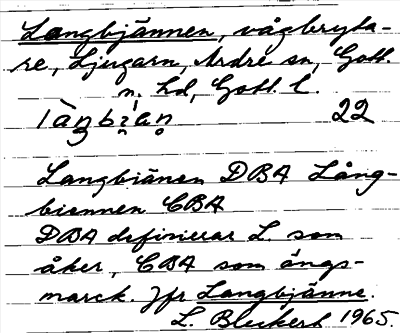 Langbjännen, vågbryta-
re, Ljugarn, Ardre sn, Gotl.
n. hd, Gotl. l.
22
Langbiänen DBA Lång-
biennen CBA
DBA definierar L. som
åker, CBA som ängs-
marck. Jfr Langbjänne.
L. Bleckert 1965.